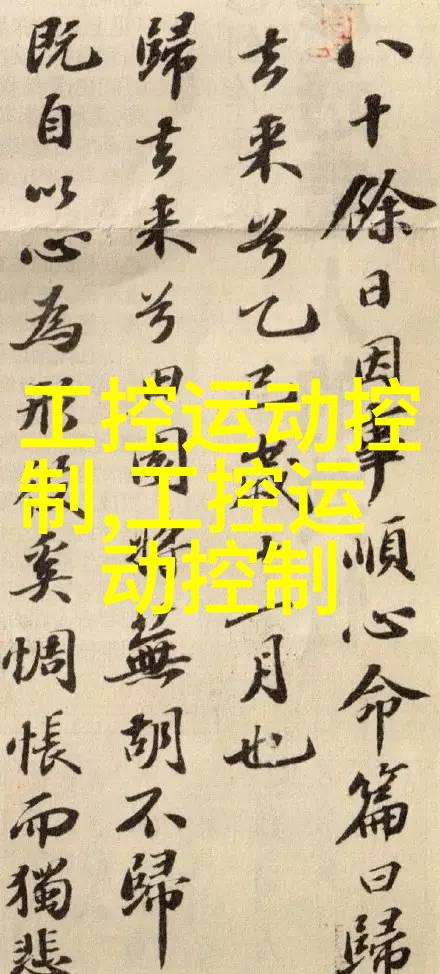 八十餘日因事順心命篇曰歸
去来兮乙巳歲十一月也
歸去来兮田園將蕪胡不歸
既自以心為形役奚惆悵而獨悲
工控运动控
制,工控运
动控制